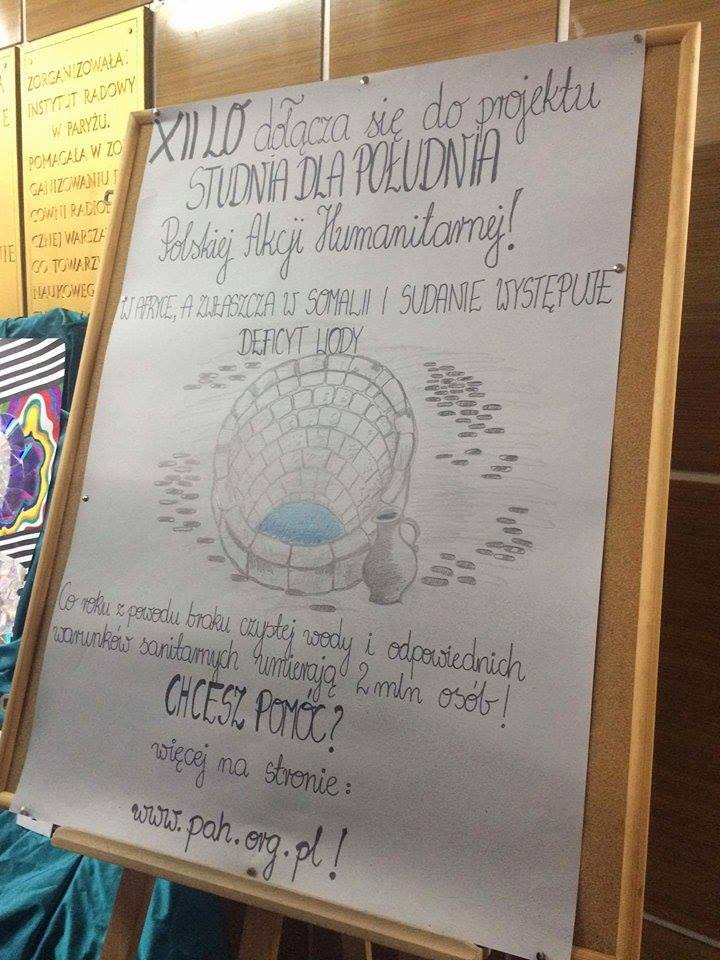 ZORGANIZOWAŁA:
INSTYTUT RADOWY
W PARYŻU.
POMAGAŁA W ZO
GANIZOWANIU
COWNI RADIO
CZNEJ WARSZA
GO TOWARZY
NAUKOWEG
XII LO dołącza się do projektu
STUDNIA DLA POŁUDNIA
Polskiej Akcji Humanitarnej!
W AFRYCE, A ZWŁASZCZA W SOMALII I SUDANIE WYSTĘPUJE
DEFICYT WODY
Co roku z powodu braku czystej wody i odpowiednich
warunków sanitarnych umierają 2 mln osób!
CHCESZ POMÓC?
więcej na stronie:
www.pah.org.pl!